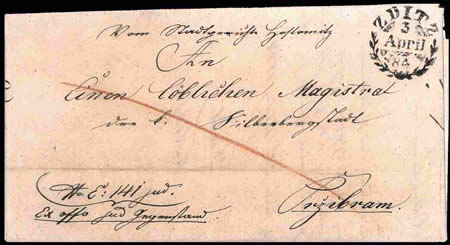 Vom Stadtgerichte Hostomitz
ZDITZ
3
April
An
Einen Löblichen Magistrat
der k. Silberbergstadt
Nro E: 141 jud.
Ex offo jud Gegenstand.
Przibram.